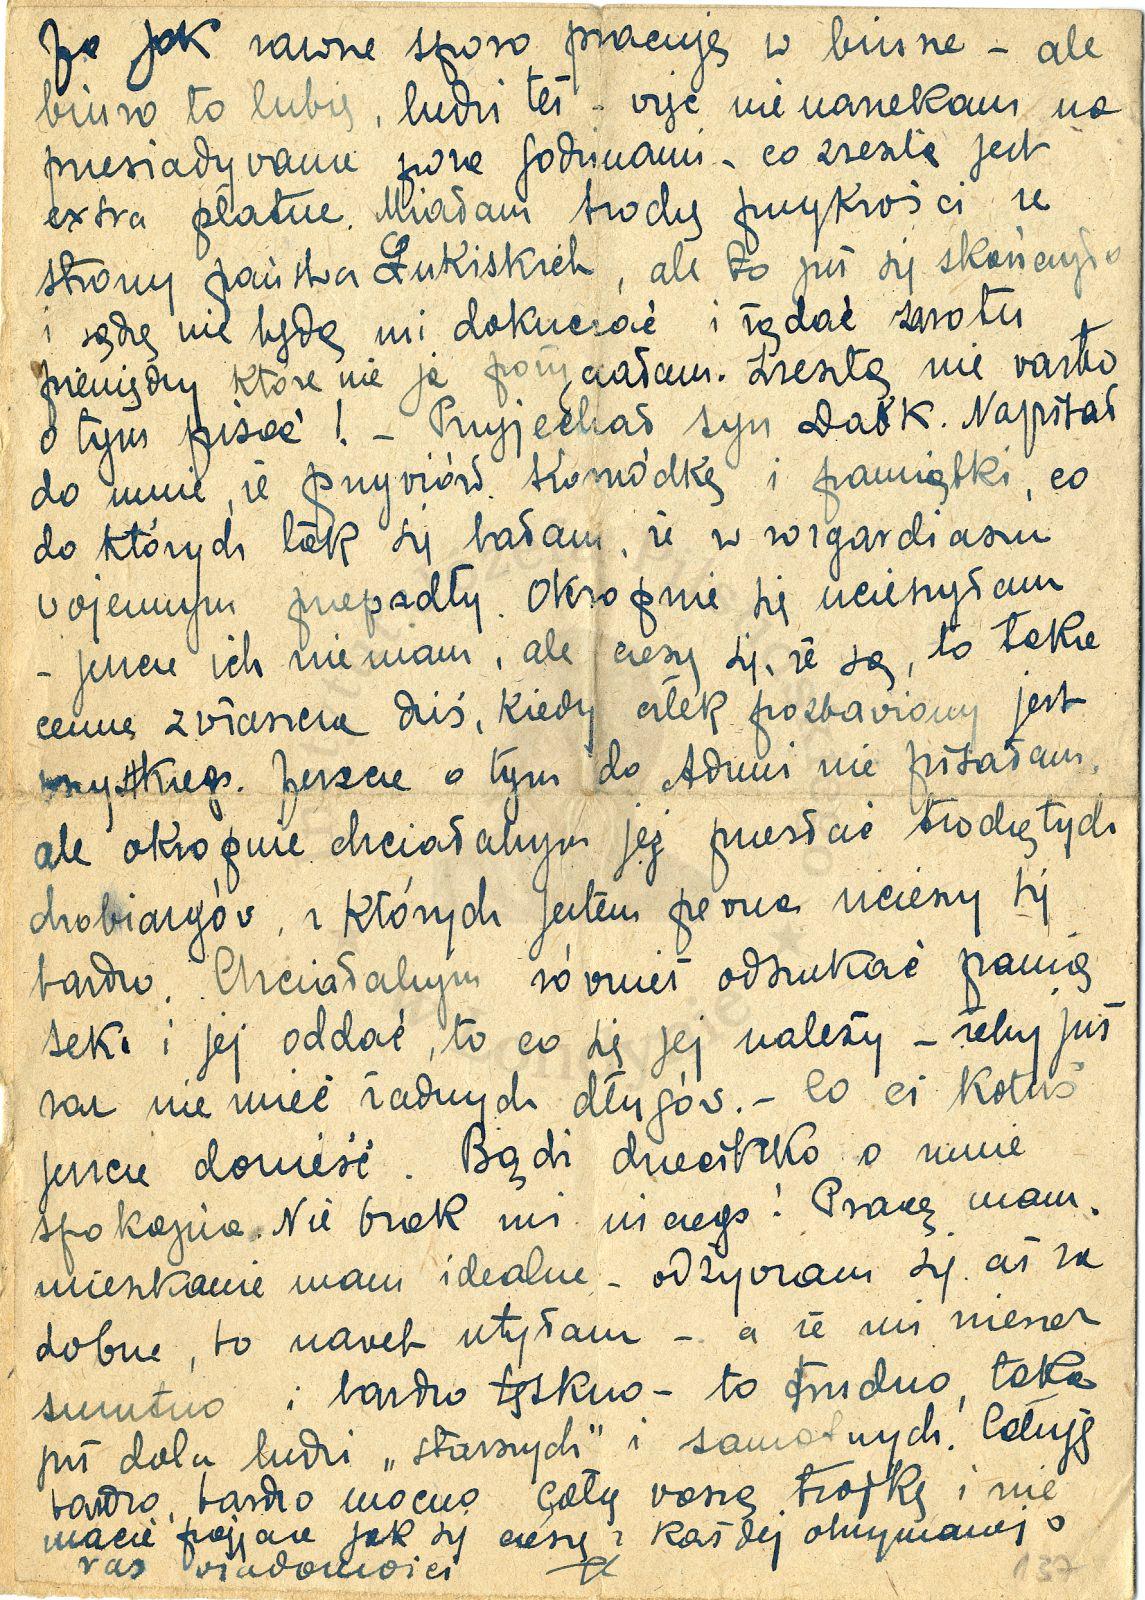 Ja jak zawsze sporo pracuję w biurze – ale
biuro to lubię, ludzi też – więc nie narzekam na
przesiadywanie poza godzinami – co zresztą jest
extra płatne. Miałam trochę przykrości ze
strony państwa Łukiskich, ale to już się skończyło
i sądzę nie będą mi dokuczać i żądać zwrotu
pieniędzy które nie ja pożyczałam. Zresztą nie warto
o tym pisać! – Przyjechał syn Dabk. Napisał
do mnie, że przywiózł komódkę i pamiątki, co
do których tak się bałam, że w rozgardiaszu
wojennym przepadły. Okropnie się ucieszyłam
– jeszcze ich nie mam, ale cieszę się, że są, to takie
cenne zwłaszcza dziś, kiedy człek pozbawiony jest
wszystkiego. Jeszcze o tym do Adzuni nie pisałam,
ale okropnie chciałabym jej przesłać trochę tych
drobiazgów, z których jestem pewna ucieszy się
bardzo. Chciałabym również odszukać panią
Sek. i jej oddać, to co się jej należy – żeby już
raz nie mieć żadnych długów. – Co ci Kotuś
jeszcze donieść. Bądź dzieciątko o mnie
spokojna. Nie brak mi niczego! Pracę mam,
mieszkanie mam idealne – odżywiam się aż za
dobrze, to nawet utyłam – a że mi nieraz
smutno i bardzo tęskno – to trudno, taka
już dola ludzi „starszych" i samotnych! Całuję
bardzo, bardzo mocno całą waszą trójkę i nie
macie pojęcia jak się cieszę z każdej otrzymanej o
was wiadomości
137